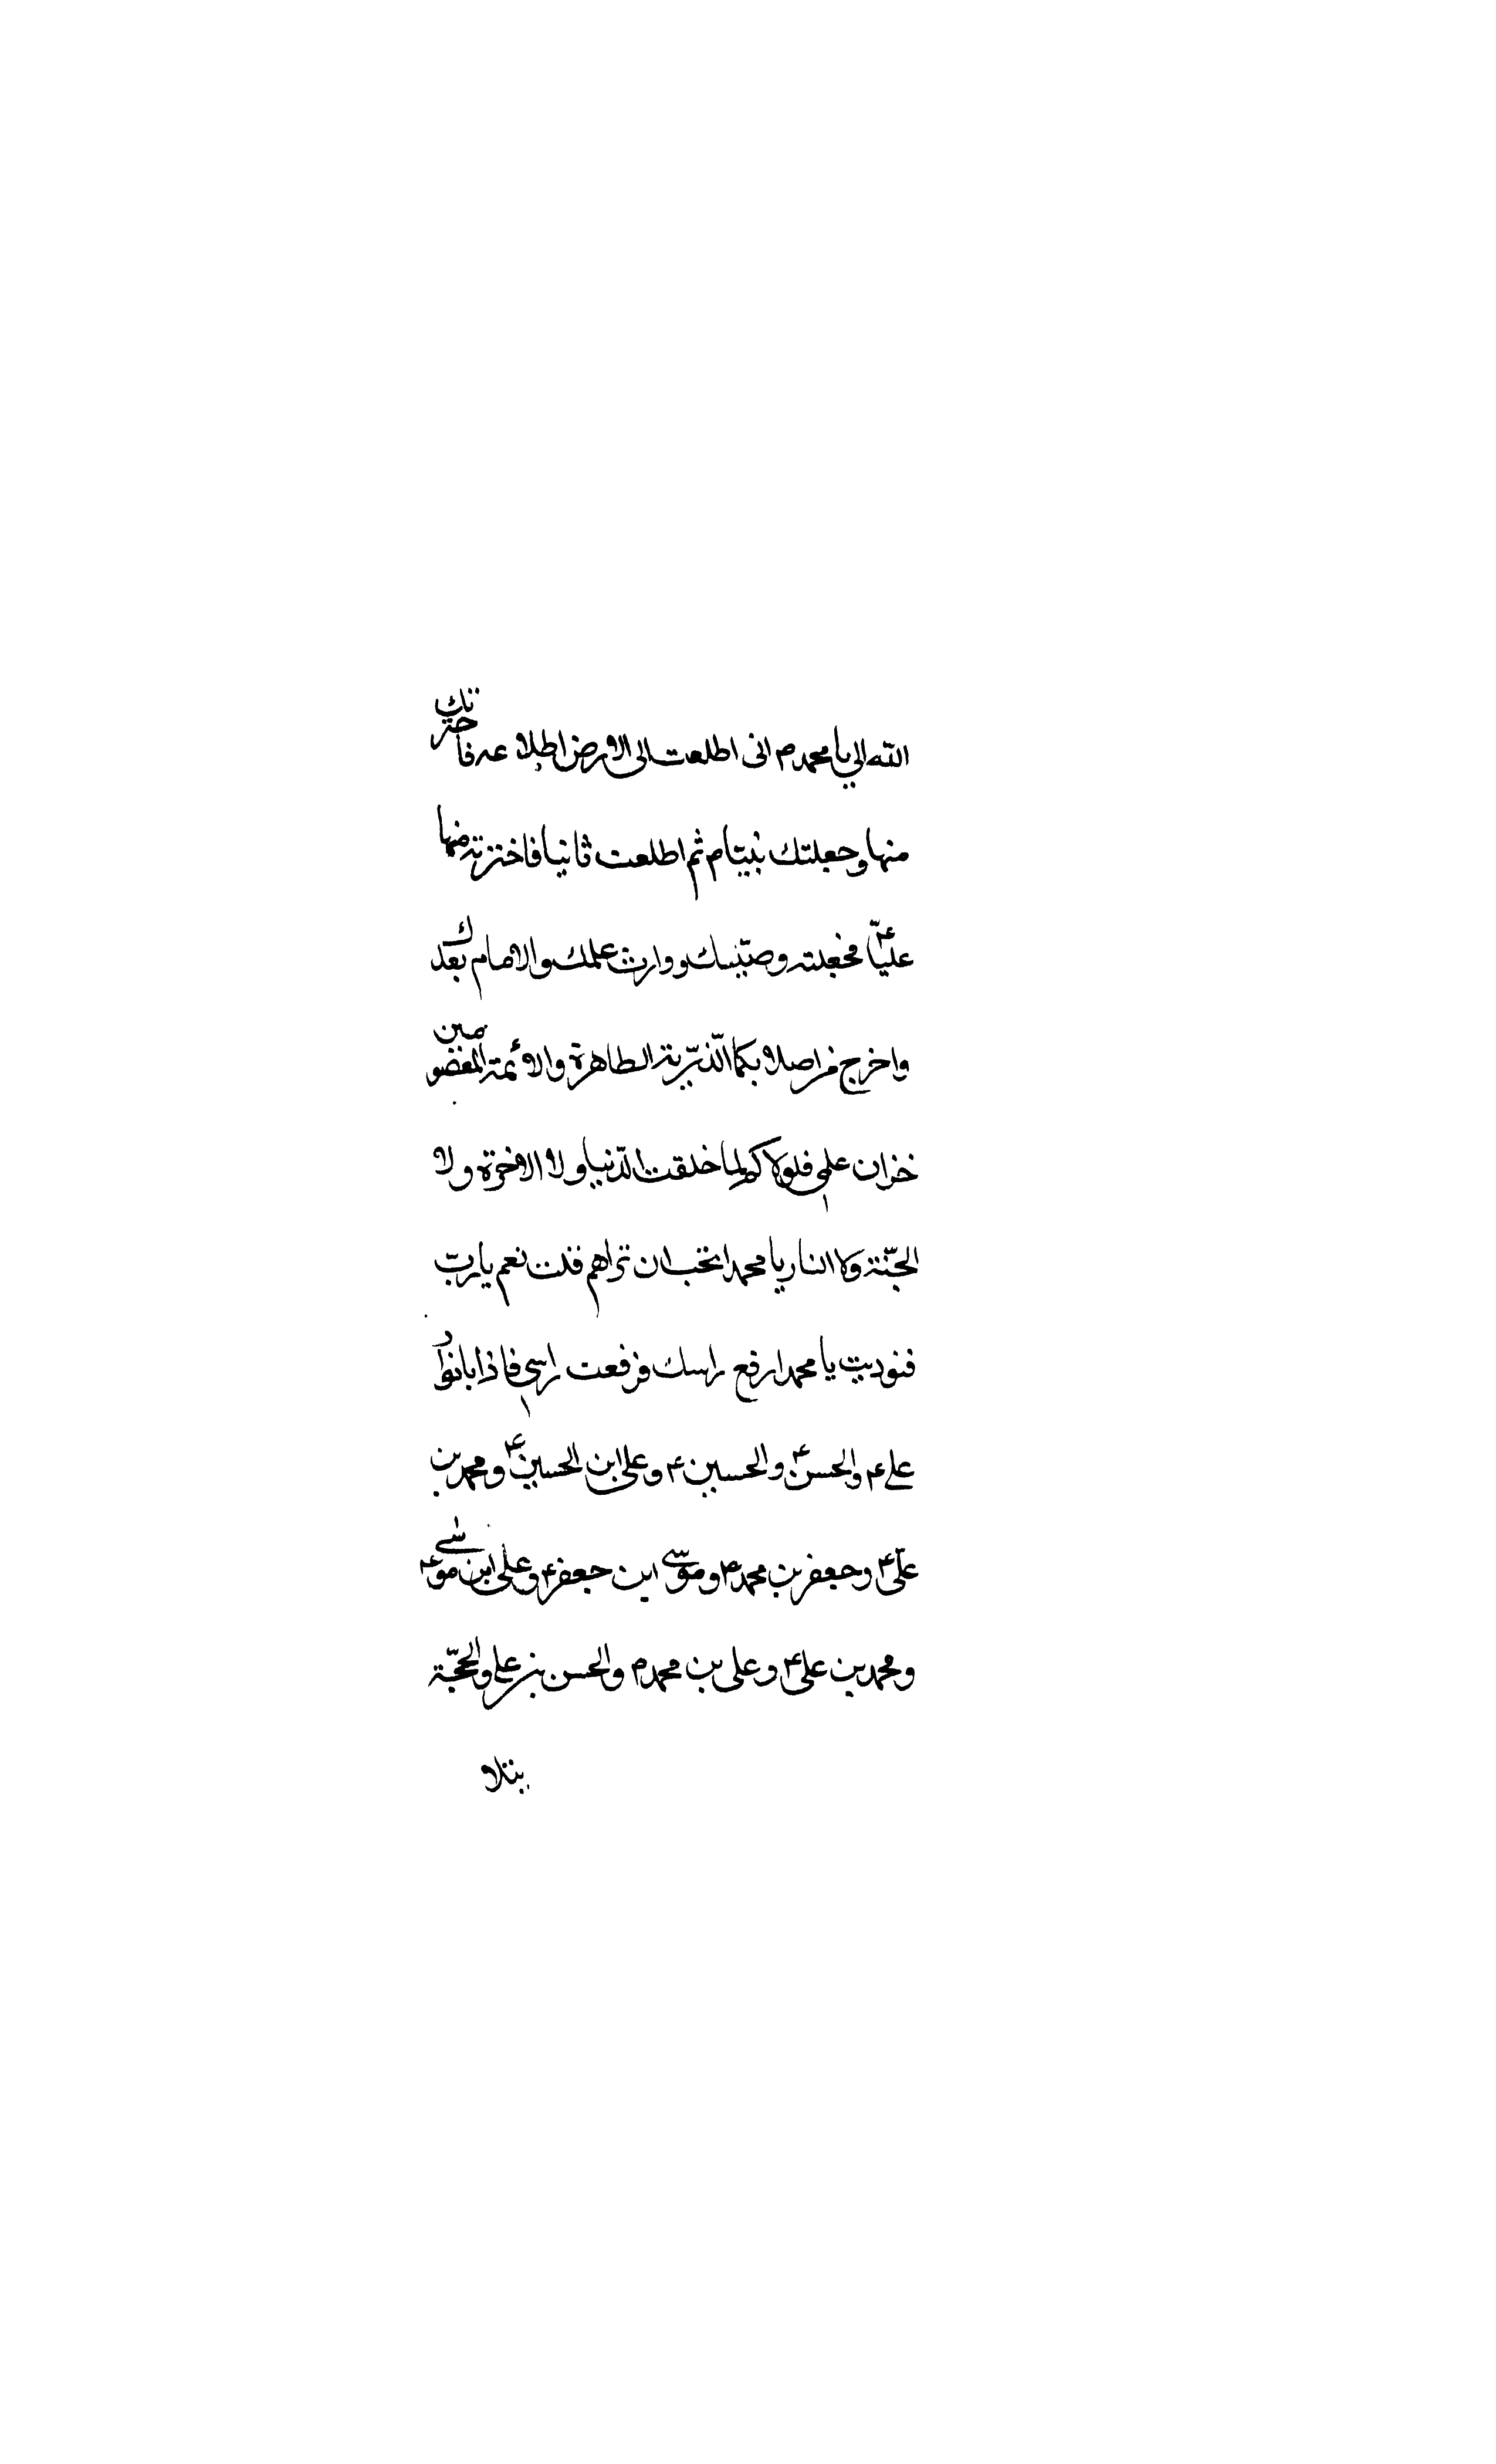 الله الي يا محمد ص انى اطلعت الى الارض اطلاعه فاخترتك
منها وجعلتك نبيّا م ثم اطلعت ثانيا فاخترته منها
عليّا ع فجعلته وصيّك ووارث علمك والامام بعدك
واخرج من اصلابكما الذّرّية الطاهرة والأئمة المعصومين
خزان علمى فلولاكم لما خلقت الدّنيا ولا الاخرة ولا
الجنّة ولا النار يا محمد اتحب ان تراهم قلت نعم يا ربّ
فنوديت يا محمد ارفع راسك فرفعت راسي فاذا بانوار
علي ع والحسن ع والحسين ع وعلى ابن الحسين ع ومحمد بن
علىّ ع وجعفر بن محمد ع وموسى ابن جعفر ع وعلى ابن موسى ع
ومحمد بن على ع وعلى بن محمد م والحسن بن على والحجّة
يتلا